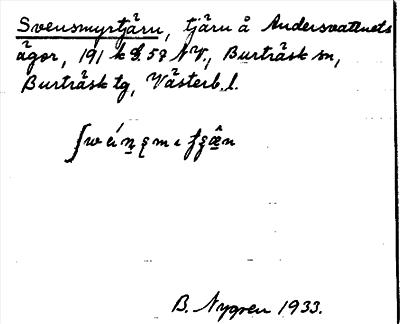 Svensmyrtjärn, tjärn å Andersvattnets
ägor, 191 k 57 NV., Burträsk sn,
Burträsk tg, Västerb. l.
B. Nygren 1933.